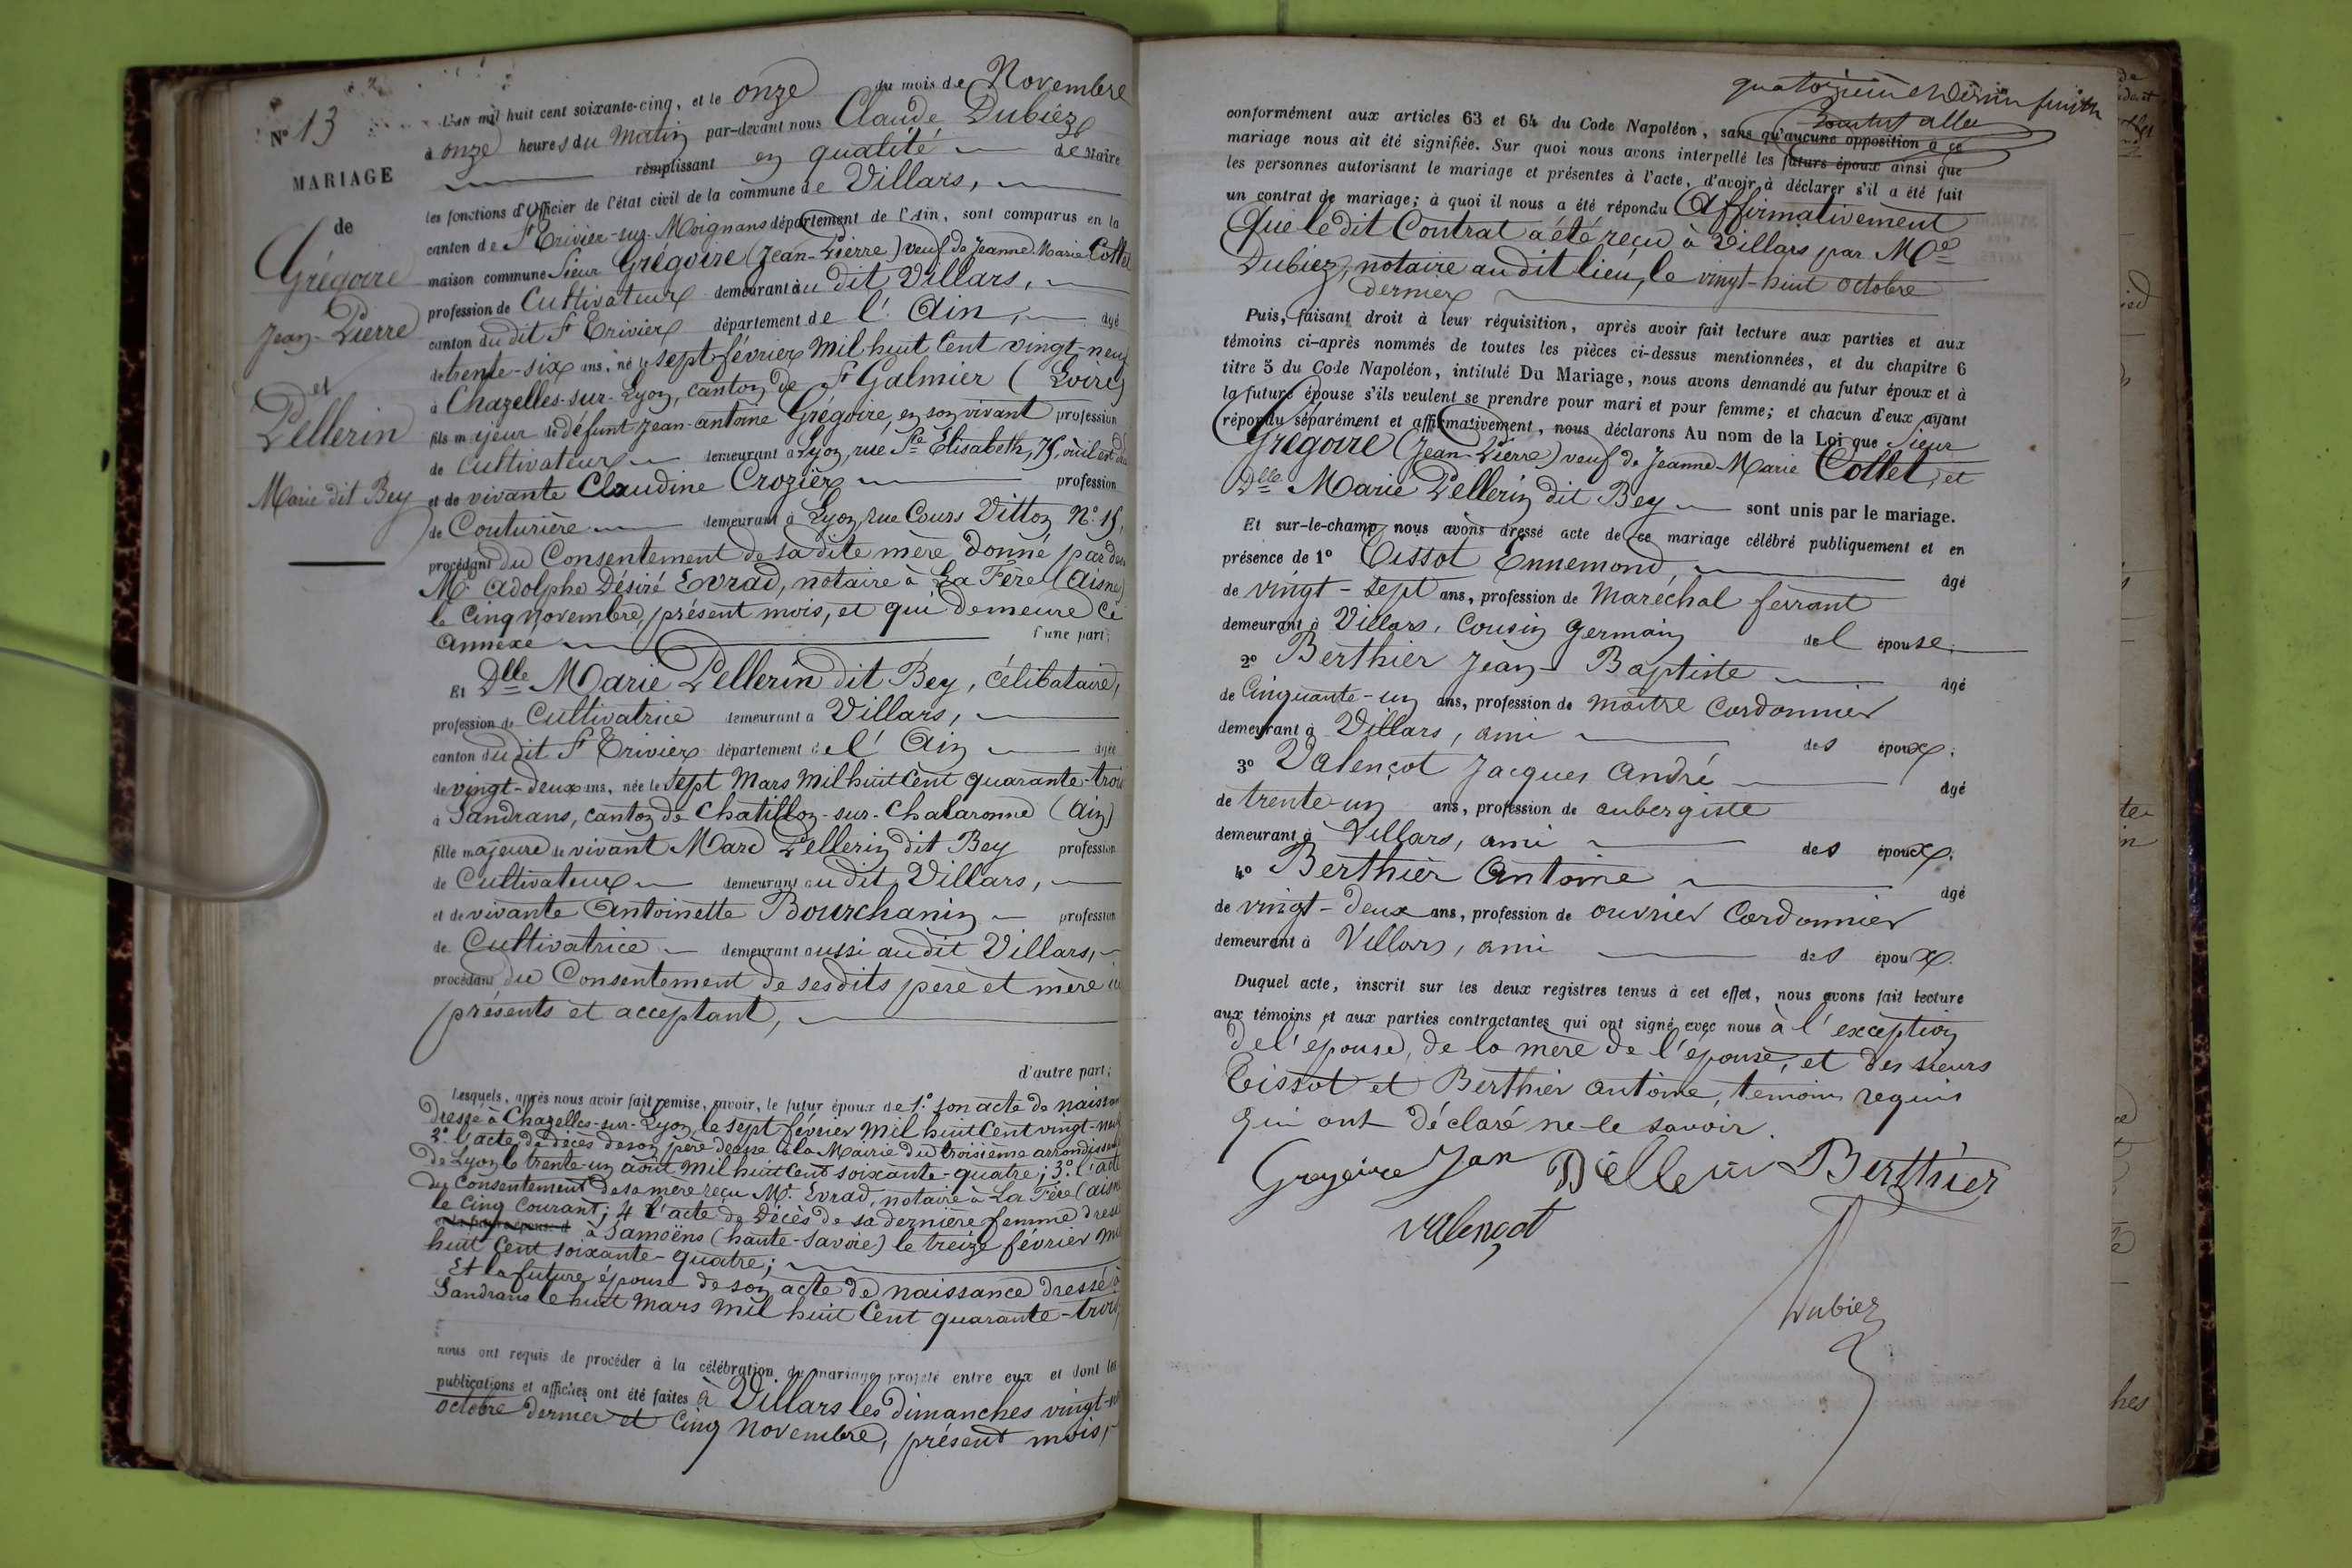 N° 13
MARIAGE
de
Grégoire
Jean-Pierre
et
Pellerin
Marie dit Bey
L'an mil huit cent soixante-cinq, et le onze du mois de Novembre
à onze heures du matin par-devant nous Claude Dubiez
remplissant en qualité de Maire
les fonctions d'Officier de l'état civil de la commune de Villars,
canton de St Trivier-sur-Moignans département de l'Ain, sont comparus en la
maison commune Sieur Grégoire (Jean-Pierre) veuf de Jeanne Marie Collet
profession de Cultivateur demeurant au dit Villars,
canton du dit St Trivier département de l'Ain, âgé
de trente-six ans, né le sept février mil huit cent vingt-neuf
à Chazelles-sur-Lyon, canton de St Galmier (Loire)
fils majeur de défunt Jean-antoine Grégoire, en son vivant profession
de Cultivateur demeurant à Lyon, rue Ste Élisabeth, 75, où il est
et de vivante Claudine Crozier profession
de Couturière demeurant à Lyon, rue Cours Vitton N° 15,
procédant du Consentement de sa dite mère donné par devant
Me Adolphe Désiré Evrad, notaire à La Fère (Aisne)
le cinq novembre, présent mois, et qui demeure ci
annexé l'une part;
Et Dlle Marie Pellerin dit Bey, célibataire,
profession de Cultivatrice demeurant à Villars,
canton du dit St Trivier département de l'Ain âgée
de vingt-deux ans, née le sept Mars mil huit cent quarante-trois
à Sandrans, canton de Chatillon-sur-Chalaronne (Ain)
fille majeure de vivant Marc Pellerin dit Bey profession
de Cultivateur demeurant au dit Villars,
et de vivante Antoinette Bourchanin profession
de Cultivatrice demeurant aussi audit Villars,
procédant du Consentement de sesdits père et mère ici
présents et acceptant,
d'autre part;
Lesquels, après nous avoir fait remise, savoir, le futur époux de 1° son acte de naissance
dressé à Chazelles-sur-Lyon le sept février mil huit cent vingt-neuf
2° l'acte de décès de son père dressé à la Mairie du troisième arrondissement
de Lyon le trente-un août mil huit cent soixante-quatre; 3° l'acte
du consentement de sa mère reçu Me Evrad, notaire à La Fère (aisne
le cinq courant; 4 l'acte de décès de sa dernière femme dressé
à Samoëns (haute-Savoie) le treize février mil
huit cent soixante-quatre;
Et la future épouse de son acte de naissance dressé à
Sandrans le huit Mars mil huit cent quarante-trois,
nous ont requis de procéder à la célébration du mariage projeté entre eux et dont les
publications et affiches ont été faites à Villars les dimanches vingt-
octobre dernier et cinq novembre, présent mois,
conformément aux articles 63 et 64 du Code Napoléon, sans qu'aucune opposition à ce
mariage nous ait été signifiée. Sur quoi nous avons interpellé les futurs époux ainsi que
les personnes autorisant le mariage et présentes à l'acte, d'avoir à déclarer s'il a été fait
un contrat de mariage; à quoi il nous a été répondu Affirmativement
Que le dit Contrat a été reçu à Villars par Me
Dubiez, notaire au dit lieu, le vingt-huit octobre
dernier
Puis, faisant droit à leur réquisition, après avoir fait lecture aux parties et aux
témoins ci-après nommés de toutes les pièces ci-dessus mentionnées, et du chapitre 6
titre 5 du Code Napoléon, intitulé Du Mariage, nous avons demandé au futur époux et à
la future épouse s'ils veulent se prendre pour mari et pour femme; et chacun d'eux ayant
répondu séparément et affirmativement, nous déclarons Au nom de la Loi que Sieur
Grégoire (Jean-Pierre) veuf de Jeanne-Marie Collet, et
Dlle Marie Pellerin dit Bey sont unis par le mariage.
Et sur-le-champ nous avons dressé acte de ce mariage célébré publiquement et en
présence de 1° Tissot Ennemond, âgé
de vingt-sept ans, profession de maréchal ferrant
demeurant à Villars, cousin germain de l épouse;
2° Berthier Jean-Baptiste âgé
de Cinquante-un ans, profession de maître Cordonnier
demeurant à Villars, ami des époux;
3° Valençot Jacques André âgé
de trente-un ans, profession de aubergiste
demeurant à Villars, ami des époux;
4° Berthier Antoine âgé
de vingt-deux ans, profession de ouvrier Cordonnier
demeurant à Villars, ami des époux.
Duquel acte, inscrit sur les deux registres tenus à cet effet, nous avons fait lecture
aux témoins et aux parties contractantes qui ont signé avec nous à l'exception
de l'épouse, de la mère de l'épouse, et des sieurs
Tissot et Berthier antoine, temoins requis
qui ont déclaré ne le savoir.
Gregoire Jan Pellerin Berthier
Valençot
Dubiez